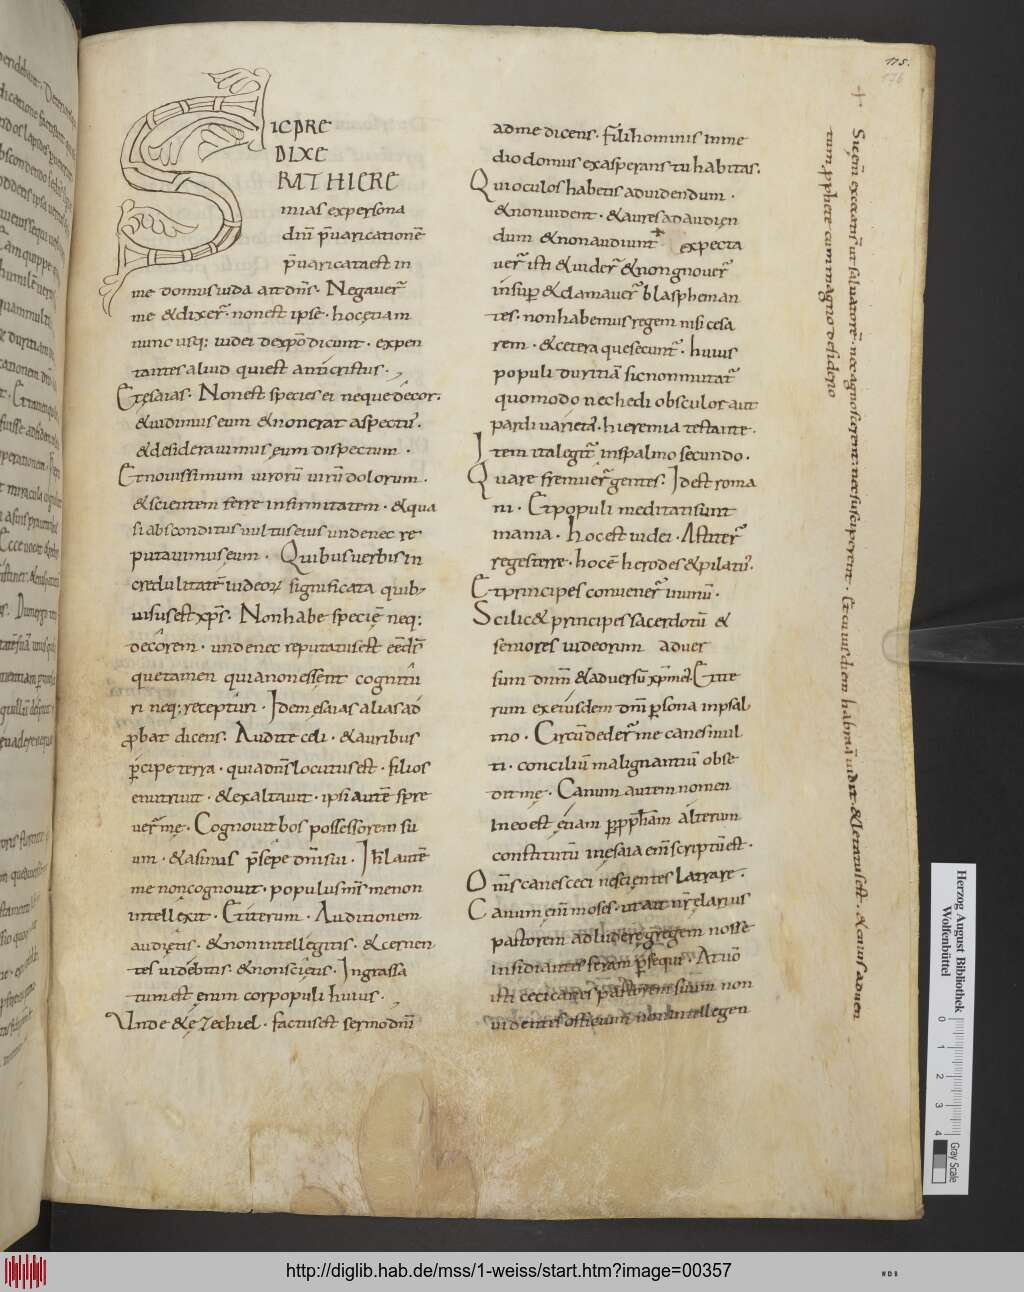 175.
176
SICPRE
DIXE
RATHIERE
mias expersona
dn̄i p̄uaricationē
p̄uaricata est in
me domus iuda ait dn̄s. Negauer̄
me & dixer̄. non est ipse. hoc etiam
nunc usq; iudei dexp̄o dicunt. expec
tantes alium qui est antichristus.
Et esaias. Non est species ei neque decor.
& uidimus eum & non erat aspectus.
& desiderauimus eum dispectum.
Et nouissimum uirorū uirū dolorum.
& scientem ferre infirmitatem. & qua
si absconditus uultus eius unde nec re
putauimus eum. Quibus uerbis in
credulitatē iudeoꝝ significata quib;
uisus est xp̄s. Non habe speciē neq;
decorem. unde nec reputatus est eē dr̄
que tamen quia non essent cognitu
ri neq; recepturi. Idem esaias alias ad
ꝓbat dicens. Audite celi. & auribus
p̄cipe terra. quia dn̄s locutus est. filios
enutriui. & exaltaui. ipsi autē spre
uer̄ me. Cognouit bos possessorem su
um. & asinus p̄sepe dn̄i sui. Isr̄l autē
me non cognouit. populus ms̄ me non
intellexit. Et iterum. Auditionem
audietis. & non intellegitis. & cernen
tes uidebitis. & non scietis. Ingrassa
tum est enim cor populi huius.
Unde & ezechiel. factus est sermo dn̄i
ad me dicens. fili hominis in me
dio domus exasperans tu habitas.
Qui oculos habetis ad uidendum.
& non uident. & aures ad audien
dum & non audiunt + expecta
uer̄ isti & uider̄ & non gnouer̄
insup̄ & clamauer̄ blaspheman
tes. non habemus regem nisi cesa
rem. & cetera que secunt̄. huius
populi duritiā sic non mutat̄
quomodo nec hedi obsculos aut
pardi uarietas. hieremia testante.
Item ita legit̄ inspalmo secundo.
Quare fremuer̄ gentes. Id est roma
ni. Et populi meditati sunt
inania. Hoc est iudei. Astiter̄
reges terre. hoc ē herodes & pilatus.
Et principes conuener̄ in unū.
Scilic& principes sacerdotū &
seniores iudeorum aduer
sum dn̄m & aduersū xp̄m ei. Et ite
rum ex eiusdem dn̄i p̄sona in psal
mo. Circūdeder̄ me canes mul
ti. conciliū malignantiū obse
dit me. Canum autem nomen
in eo est etiam alterum
constitutū in esaia eni scriptū est.
Om̄s canes ceci nescientes latrare.
Canum eni moses. ut ait mr̄ clarius
pastorem adludere gregem nosse
insidiantes feram p̄sequi. At uō
isti ceci canes pastorem suum non
uidentis officium non intellegen
+
Sic eni excecati st̄ ut saluatorē. nec agnoscerent. nec susciperent. Et cuius diem habraā uidit & letatus est. & cuius aduen
tum. ꝓphete cum magno desiderio
Herzog August Bibliothek
Wolfenbüttel
0 1 2 3 4
Gray Scale
http://diglib.hab.de/mss/1-weiss/start.htm?image=00357